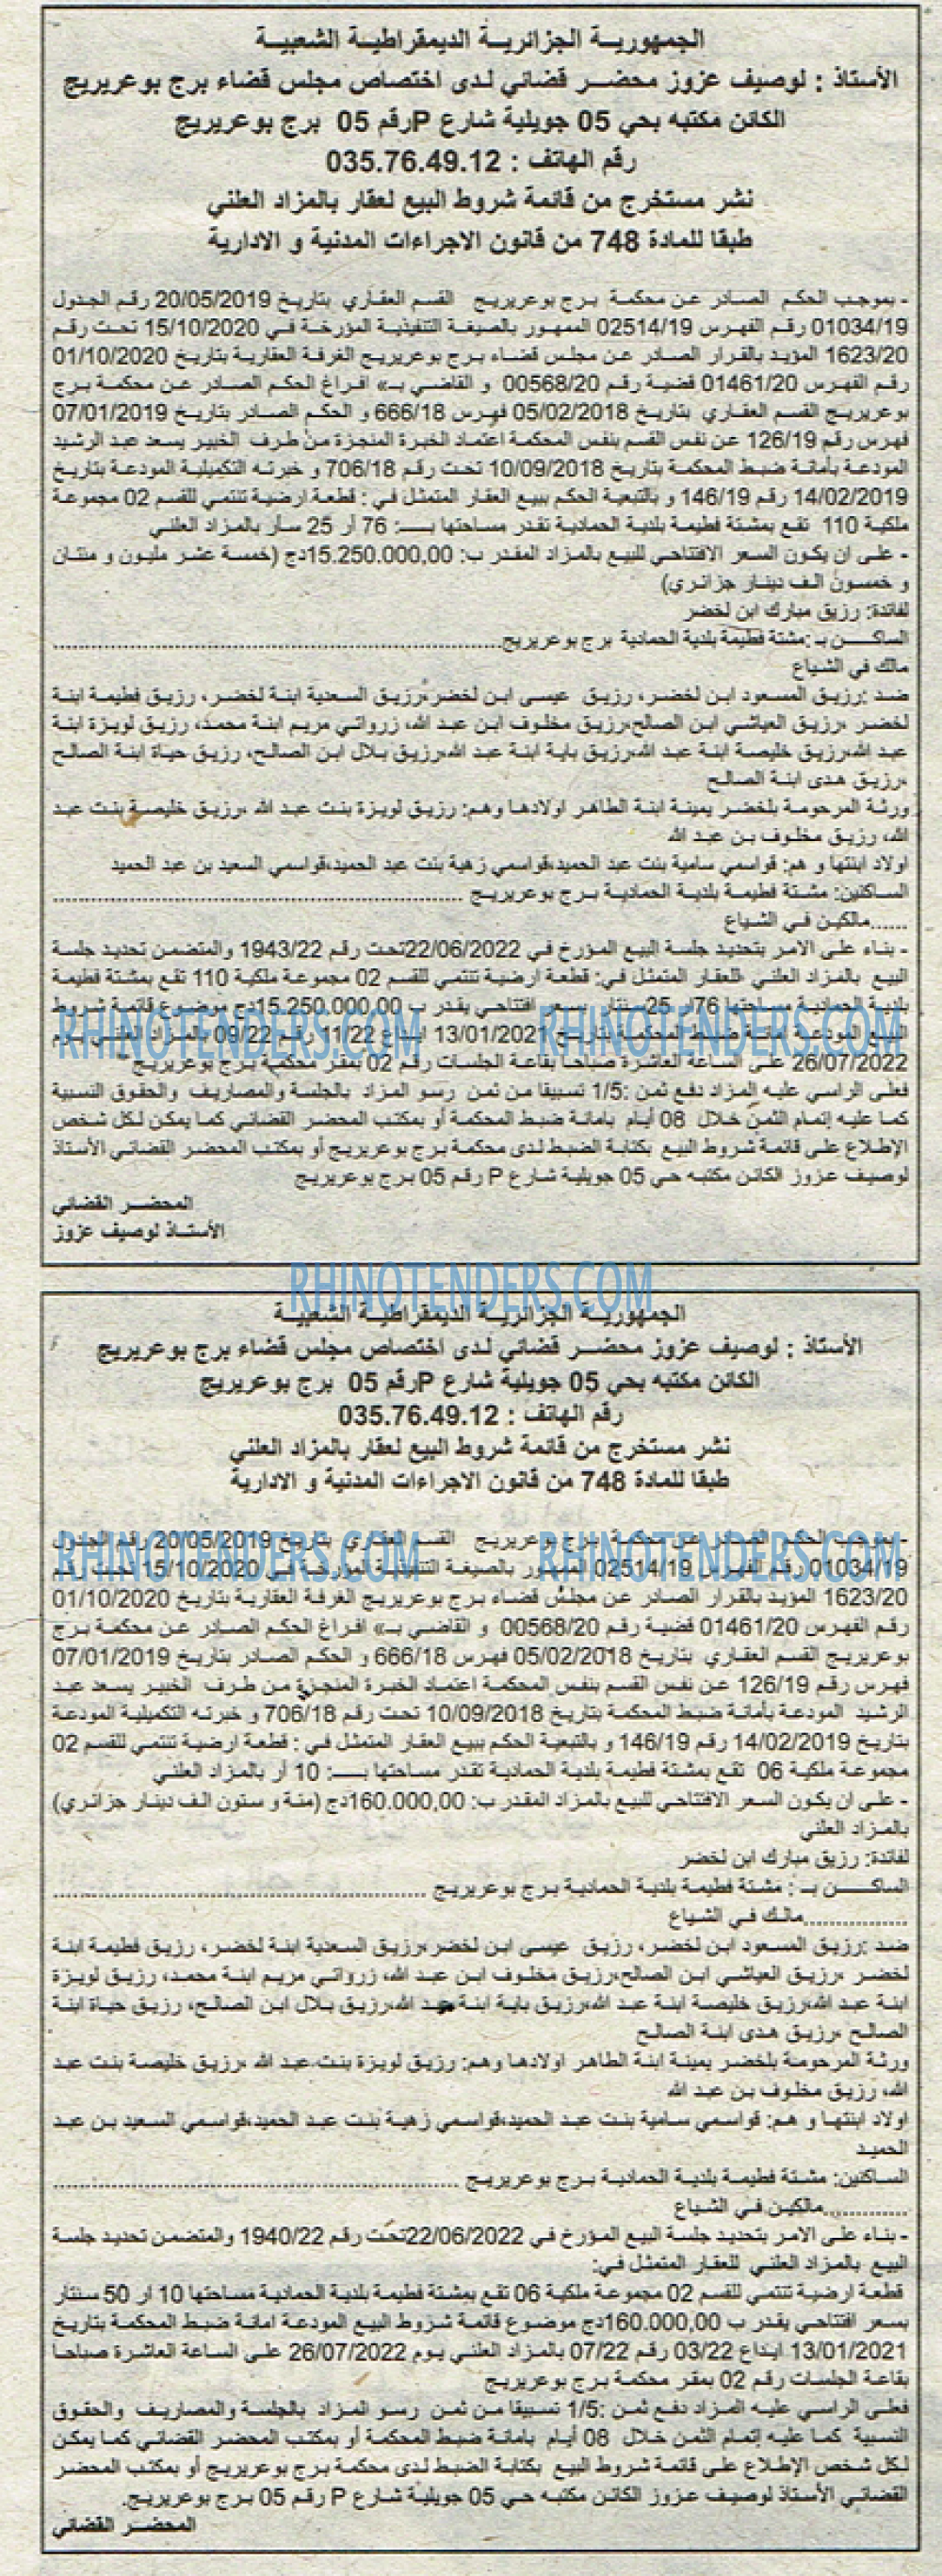 الجمهورية الجزائرية الديمقراطية الشعبية
الأستاذ : لوصيف عزوز محضر قضائي لدى اختصاص مجلس قضاء برج بوعريريج
الكائن مكتبه بحي 05 جويلية شارع P رقم 05 برج بوعريريج
رقم الهاتف : 035.76.49.12
نشر مستخرج من قائمة شروط البيع لعقار بالمزاد العلني
طبقا للمادة 748 من قانون الاجراءات المدنية و الادارية
- بموجب الحكم الصادر عن محكمة برج بوعريريج القسم العقاري بتاريخ 20/05/2019 رقم الجدول
01034/19 رقم الفهرس 02514/19 الممهور بالصيغة التنفيذية المؤرخة في 15/10/2020 تحت رقم
1623/20 المؤيد بالقرار الصادر عن مجلس قضاء برج بوعريريج الغرفة العقارية بتاريخ 01/10/2020
رقم الفهرس 01461/20 قضية رقم 00568/20 و القاضي بـ» افراغ الحكم الصادر عن محكمة برج
بوعريريج القسم العقاري بتاريخ 05/02/2018 فهرس 666/18 و الحكم الصادر بتاريخ 07/01/2019
فهرس رقم 126/19 عن نفس القسم بنفس المحكمة اعتماد الخبرة المنجزة من طرف الخبير يسعد عبد الرشيد
المودعة بأمانة ضبط المحكمة بتاريخ 10/09/2018 تحت رقم 706/18 و خبرته التكميلية المودعة بتاريخ
14/02/2019 رقم 146/19 و بالتبعية الحكم ببيع العقار المتمثل في : قطعة ارضية تنتمي للقسم 02 مجموعة
ملكية 110 تقع بمشتة فطيمة بلدية الحمادية تقدر مساحتها بـــ: 76 أر 25 سأر بالمزاد العلني
- على ان يكون السعر الافتتاحي للبيع بالمزاد المقدر ب: 15.250.000,00دج (خمسة عشر مليون و منتان
و خمسون الف دينار جزائري)
لفائدة: رزيق مبارك ابن لخضر
الساكـــــن بـ :مشتة فطيمة بلدية الحمادية برج بوعريريج......................................................
مالك في الشياع
ضد :رزيق المسعود ابن لخضر، رزيق عيسى ابن لخضر،رزيق السعدية ابنة لخضر، رزيق فطيمة ابنة
لخضر ،رزيق العياشي ابن الصالح،رزيق مخلوف ابن عبد الله، زرواتي مريم ابنة محمد، رزيق لويزة ابنة
عبد الله،رزيق خليصة ابنة عبد الله،رزيق باية ابنة عبد الله،رزيق بلال ابن الصالح، رزيق حياة ابنة الصالح
،رزيق هدى ابنة الصالح
ورثة المرحومة بلخضر يمينة ابنة الطاهر اولادها وهم: رزيق لويزة بنت عبد الله ،رزيق خليصة بنت عبد
الله، رزيق مخلوف بن عبد الله
اولاد ابنتها و هم: قواسمي سامية بنت عبد الحميد،قواسمي زهية بنت عبد الحميد،قواسمي السعيد بن عبد الحميد
الساكنين: مشتة فطيمة بلدية الحمادية برج بوعريريج ......................................................
......مالكين في الشياع
- بناء على الامر بتحديد جلسة البيع المؤرخ في 22/06/2022تحت رقم 1943/22 والمتضمن تحديد جلسة
البيع بالمزاد العلني للعقار المتمثل في: قطعة ارضية تنتمي للقسم 02 مجموعة ملكية 110 تقع بمشتة فطيمة
بلدية الحمادية مساحتها 76ار 25سنتار بسعر افتتاحي يقدر ب 15.250.000,00دج موضوع قائمة شروط
البيع المودعة امانة ضبط المحكمة بتاريخ 13/01/2021 ايداع 11/22 رقم 09/22 بالمزاد العلني يوم
26/07/2022 على الساعة العاشرة صباحا بقاعة الجلسات رقم 02 بمقر محكمة برج بوعريريج
فعلى الراسي عليه المزاد دفع ثمن :1/5 تسبيقا من ثمن رسو المزاد بالجلسة والمصاريف والحقوق النسبية
كما عليه إتمام الثمن خلال 08 أيام بامانة ضبط المحكمة أو بمكتب المحضر القضائي كما يمكن لكل شخص
الإطلاع على قائمة شروط البيع بكتابة الضبط لدى محكمة برج بوعريريج أو بمكتب المحضر القضائي الأستاذ
لوصيف عزوز الكائن مكتبه حي 05 جويلية شارع P رقم 05 برج بوعريريج
المحضر القضائي
الأستاذ لوصيف عزوز
RHINOTENDERS.COM RHINOTENDERS.COM
RHINOTENDERS.COM
الجمهورية الجزائرية الديمقراطية الشعبية
الأستاذ : لوصيف عزوز محضر قضائي لدى اختصاص مجلس قضاء برج بوعريريج
الكائن مكتبه بحي 05 جويلية شارع P رقم 05 برج بوعريريج
رقم الهاتف : 035.76.49.12
نشر مستخرج من قائمة شروط البيع لعقار بالمزاد العلني
طبقا للمادة 748 من قانون الاجراءات المدنية و الادارية
RHINOTENDERS.COM RHINOTENDERS.COM
- بموجب الحكم الصادر عن محكمة برج بوعريريج القسم العقاري بتاريخ 20/05/2019 رقم الجدول
01034/19 رقم الفهرس 02514/19 الممهور بالصيغة التنفيذية المؤرخة في 15/10/2020 تحت رقم
1623/20 المؤيد بالقرار الصادر عن مجلس قضاء برج بوعريريج الغرفة العقارية بتاريخ 01/10/2020
رقم الفهرس 01461/20 قضية رقم 00568/20 و القاضي بـ» افراغ الحكم الصادر عن محكمة برج
بوعريريج القسم العقاري بتاريخ 05/02/2018 فهرس 666/18 و الحكم الصادر بتاريخ 07/01/2019
فهرس رقم 126/19 عن نفس القسم بنفس المحكمة اعتماد الخبرة المنجزة من طرف الخبير يسعد عبد
الرشيد المودعة بأمانة ضبط المحكمة بتاريخ 10/09/2018 تحت رقم 706/18 و خبرته التكميلية المودعة
بتاريخ 14/02/2019 رقم 146/19 و بالتبعية الحكم ببيع العقار المتمثل في : قطعة ارضية تنتمي للقسم 02
مجموعة ملكية 06 تقع بمشتة فطيمة بلدية الحمادية تقدر مساحتها بـــ: 10 أر بالمزاد العلني
- على ان يكون السعر الافتتاحي للبيع بالمزاد المقدر ب: 160.000,00دج (منة و ستون الف دينار جزائري)
بالمزاد العلني
لفائدة: رزيق مبارك ابن لخضر
الساكـــــن بـ : مشتة فطيمة بلدية الحمادية برج بوعريريج ......................................................
................مالك في الشياع
ضد :رزيق المسعود ابن لخضر، رزيق عيسى ابن لخضر،رزيق السعدية ابنة لخضر، رزيق فطيمة ابنة
لخضر ،رزيق العياشي ابن الصالح،رزيق مخلوف ابن عبد الله، زرواتي مريم ابنة محمد، رزيق لويزة
ابنة عبد الله،رزيق خليصة ابنة عبد الله،رزيق باية ابنة عبد الله،رزيق بلال ابن الصالح، رزيق حياة ابنة
الصالح ،رزيق هدى ابنة الصالح
ورثة المرحومة بلخضر يمينة ابنة الطاهر اولادها وهم: رزيق لويزة بنت عبد الله ،رزيق خليصة بنت عبد
الله، رزيق مخلوف بن عبد الله
اولاد ابنتها و هم: قواسمي سامية بنت عبد الحميد،قواسمي زهية بنت عبد الحميد،قواسمي السعيد بن عبد
الحميد
الساكنين: مشتة فطيمة بلدية الحمادية برج بوعريريج ......................................................
.............مالكين في الشياع
- بناء على الامر بتحديد جلسة البيع المؤرخ في 22/06/2022تحت رقم 1940/22 والمتضمن تحديد جلسة
البيع بالمزاد العلني للعقار المتمثل في:
قطعة ارضية تنتمي للقسم 02 مجموعة ملكية 06 تقع بمشتة فطيمة بلدية الحمادية مساحتها 10 ار 50 سنتار
بسعر افتتاحي يقدر ب 160.000,00دج موضوع قائمة شروط البيع المودعة امانة ضبط المحكمة بتاريخ
13/01/2021 ايداع 03/22 رقم 07/22 بالمزاد العلني يوم 26/07/2022 على الساعة العاشرة صباحا
بقاعة الجلسات رقم 02 بمقر محكمة برج بوعريريج
فعلى الراسي عليه المزاد دفع ثمن :1/5 تسبيقا من ثمن رسو المزاد بالجلسة والمصاريف والحقوق
النسبية كما عليه إتمام الثمن خلال 08 أيام بامانة ضبط المحكمة أو بمكتب المحضر القضائي كما يمكن
لكل شخص الإطلاع على قائمة شروط البيع بكتابة الضبط لدى محكمة برج بوعريريج أو بمكتب المحضر
القضائي الأستاذ لوصيف عزوز الكائن مكتبه حي 05 جويلية شارع P رقم 05 برج بوعريريج.
المحضر القضائي